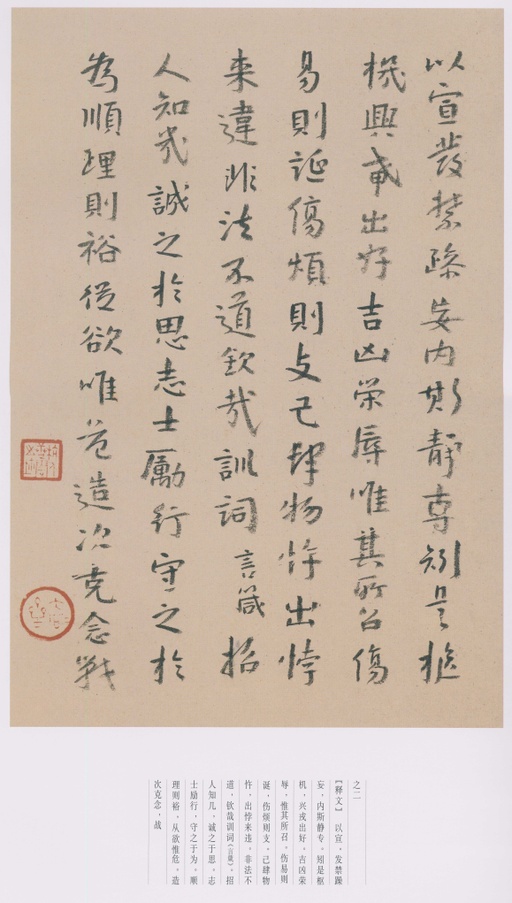 以宣發禁躁妄内斯靜專矧是樞
機興戎出好吉凶榮辱唯其所召傷
易則誕傷煩則支己肆物忤出悖
来違非法不道欽哉訓詞言箴招
人知幾誠之於思志士勵行守之於
為順理則裕從欲唯危造次克念戰
之二
【释文】 以宣，发禁躁
妄，内斯静专。矧是枢
机，兴戎出好，吉凶荣
辱，惟其所召。伤易则
诞，伤烦则支，己肆物
忤，出悖来违。非法不
道，钦哉训词（言箴）。招
人知几，诚之于思，志
士励行，守之于为，顺
理则裕，从欲惟危，造
次克念，战